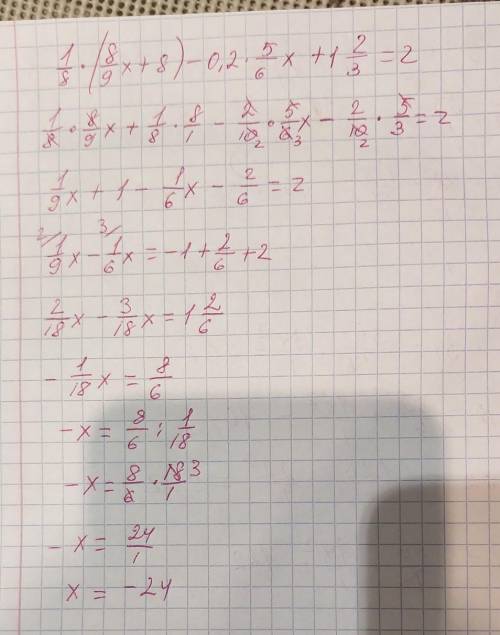 1/8 · (8/9 x + 8) − 0,2 · 5/6 x + 1 2/3 = 2
1/8 · 8/9 x + 1/8 · 8/1 − 2/10 2 · 5/6 3 x − 2/10 2 · 5/3 = 2
1/9 x + 1 − 1/6 x − 2/6 = 2
2/ 1/9 x − 3/ 1/6 x = −1 + 2/6 + 2
2/18 x − 3/18 x = 1 2/6
− 1/18 x = 8/6
−x = 8/6 : 1/18
−x = 8/6 · 18 3/1
−x = 24/1
x = −24